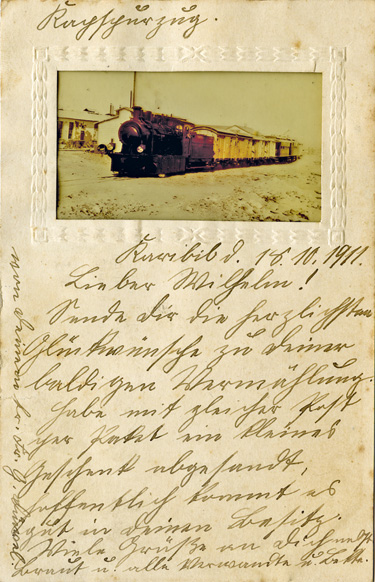 Kapspurzug.
Karibib d. 18.10.1911.
Lieber Wilhelm!
Sende dir die herzlichsten
Glückwünsche zu deiner
baldigen Vermählung.
Habe mit gleicher Post
per Paket ein kleines
Geschenk abgesandt,
hoffentlich kommt es
gut in deinen Besitz.
Viele Grüße an Dich nebst
Braut u. alle Verwandte u. Bekte.
von deinem